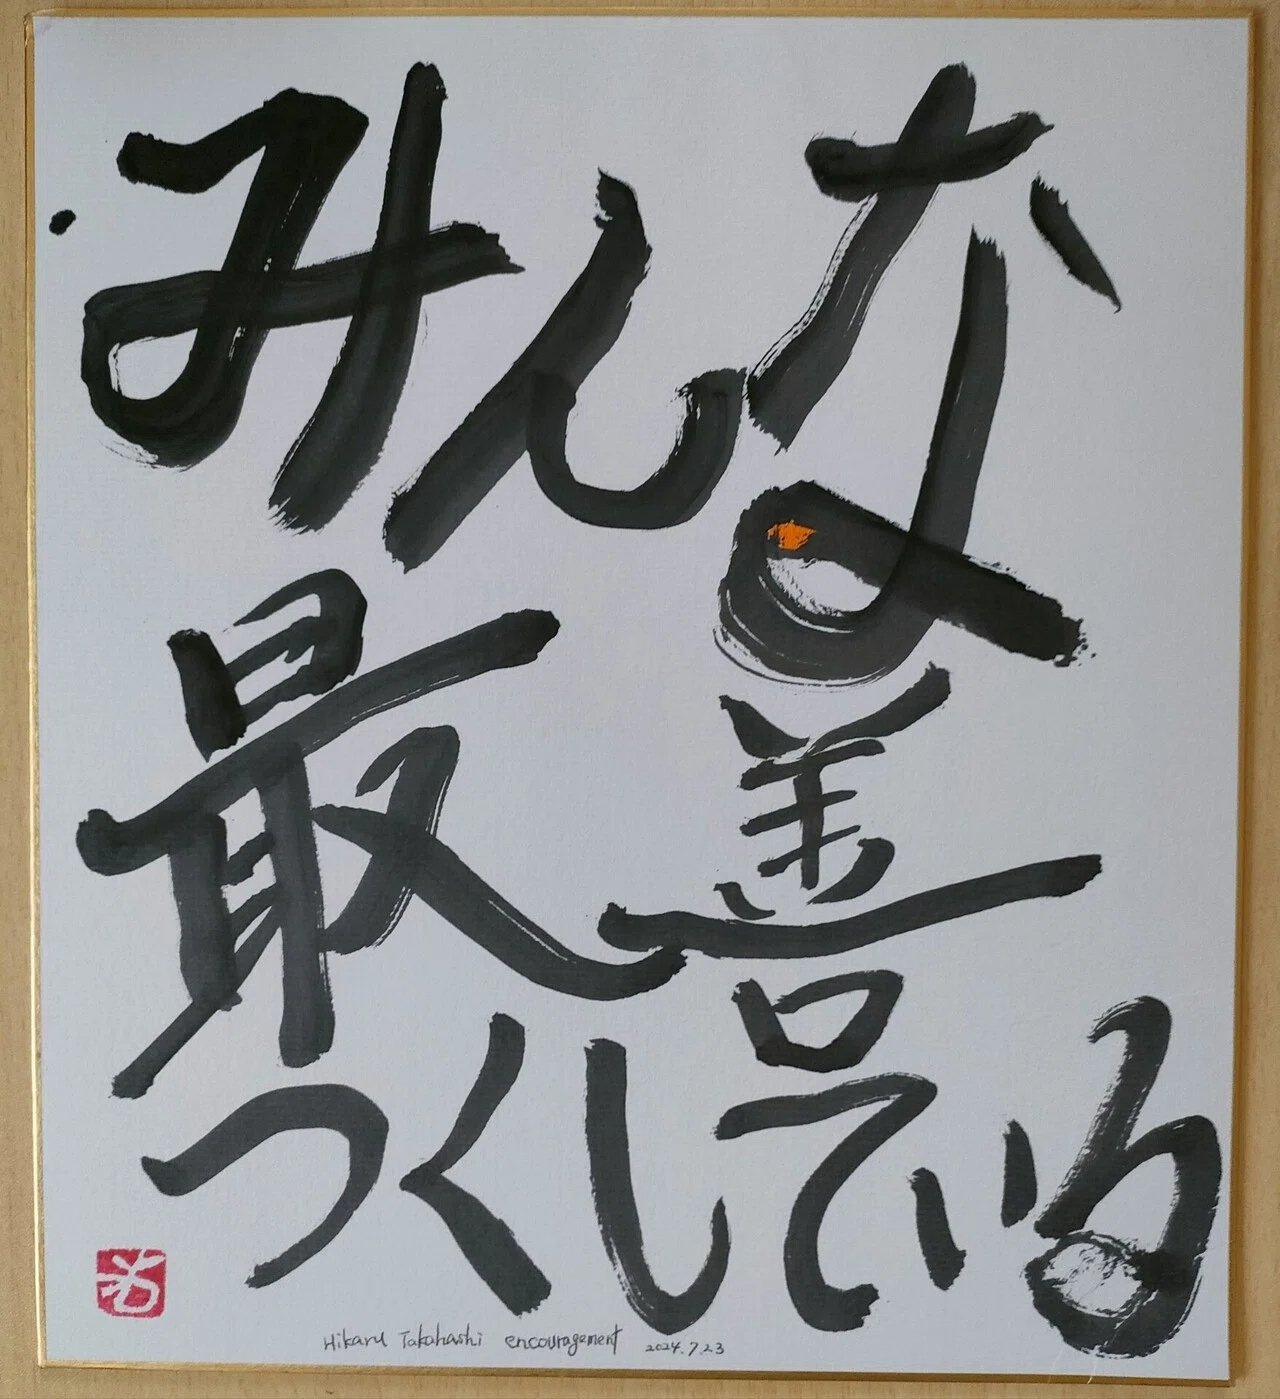 みんな
最善
つくしている
Hikaru Takahashi encouragement 2024.7.23